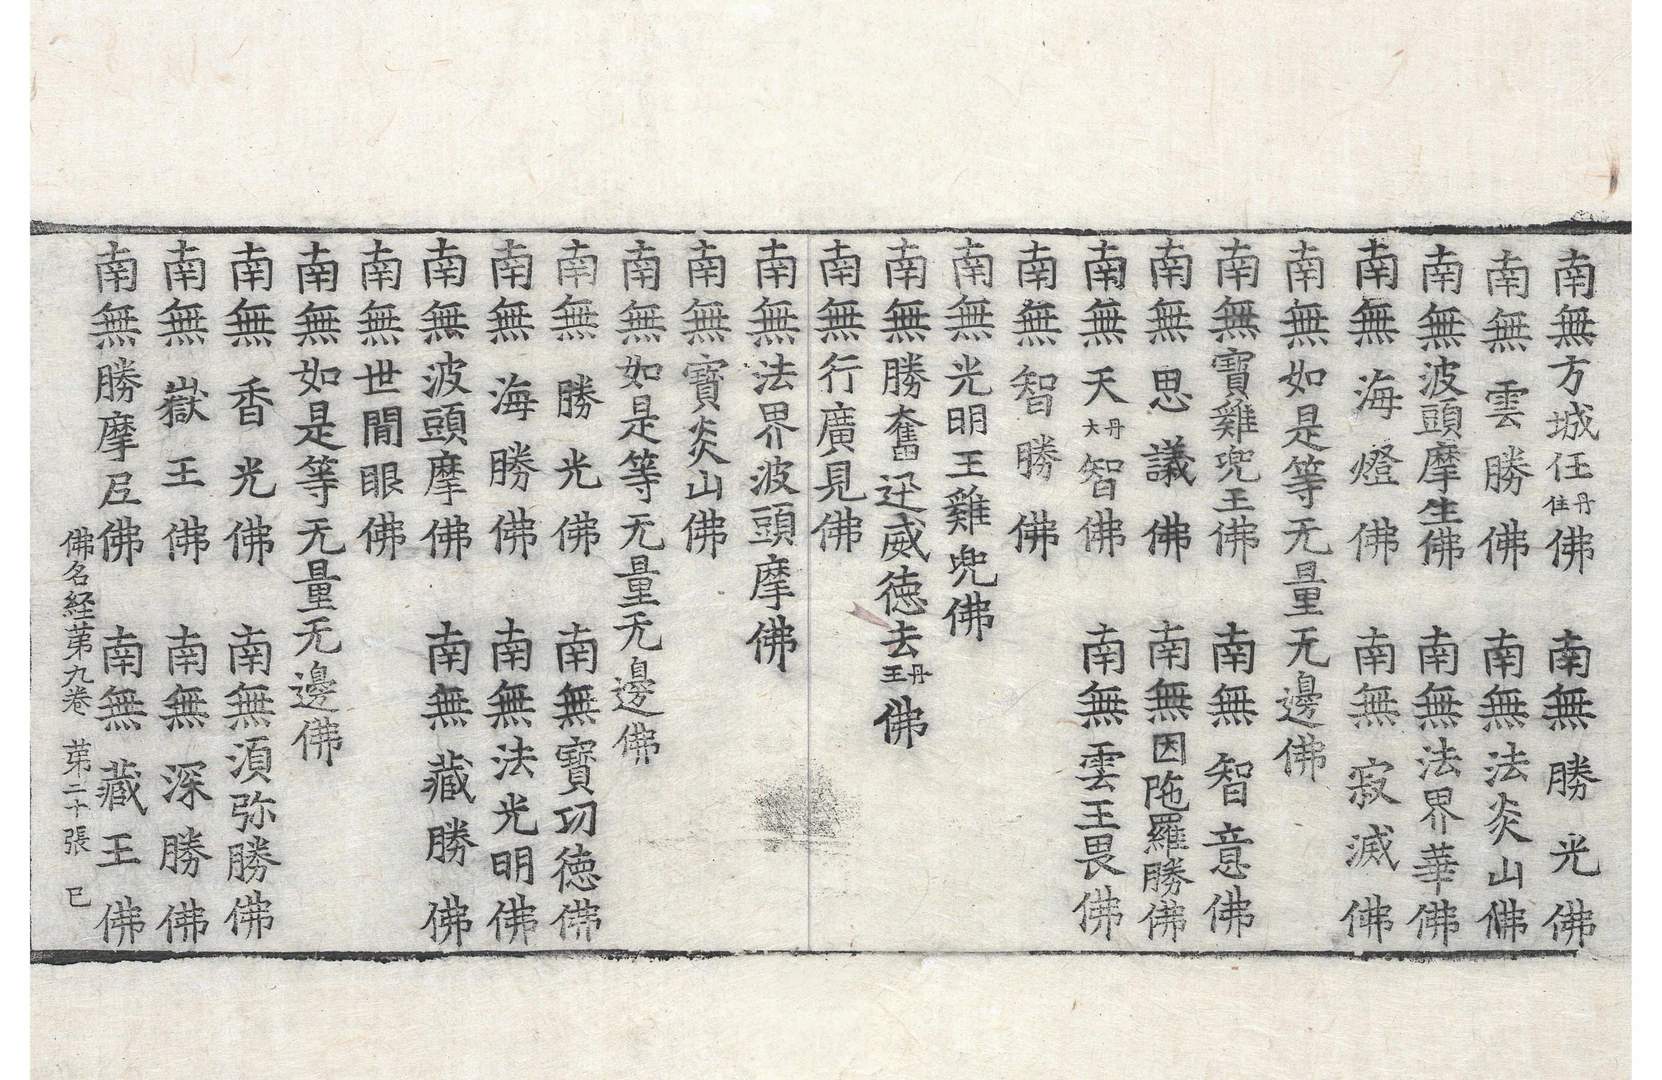 南無方城任丹住佛 南無勝光佛
南無雲勝佛 南無法炎山佛
南無波頭摩生佛 南無法界華佛
南無海燈佛 南無寂滅佛
南無如是等无量无邊佛
南無寶雞兜王佛 南無智意佛
南無思議佛 南無因陁羅勝佛
南無天丹大智佛 南無雲王畏佛
南無智勝佛
南無光明王雞兜佛
南無勝奮迅威德去丹王佛
南無行廣見佛
南無法界波頭摩佛
南無寶炎山佛
南無如是等无量无邊佛
南無勝光佛 南無寶功德佛
南無海勝佛 南無法光明佛
南無波頭摩佛 南無藏勝佛
南無世間眼佛
南無如是等无量无邊佛
南無香光佛 南無須弥勝佛
南無嶽王佛 南無深勝佛
南無勝摩𡰱佛 南無藏王佛
佛名経苐九卷 苐二十張 已